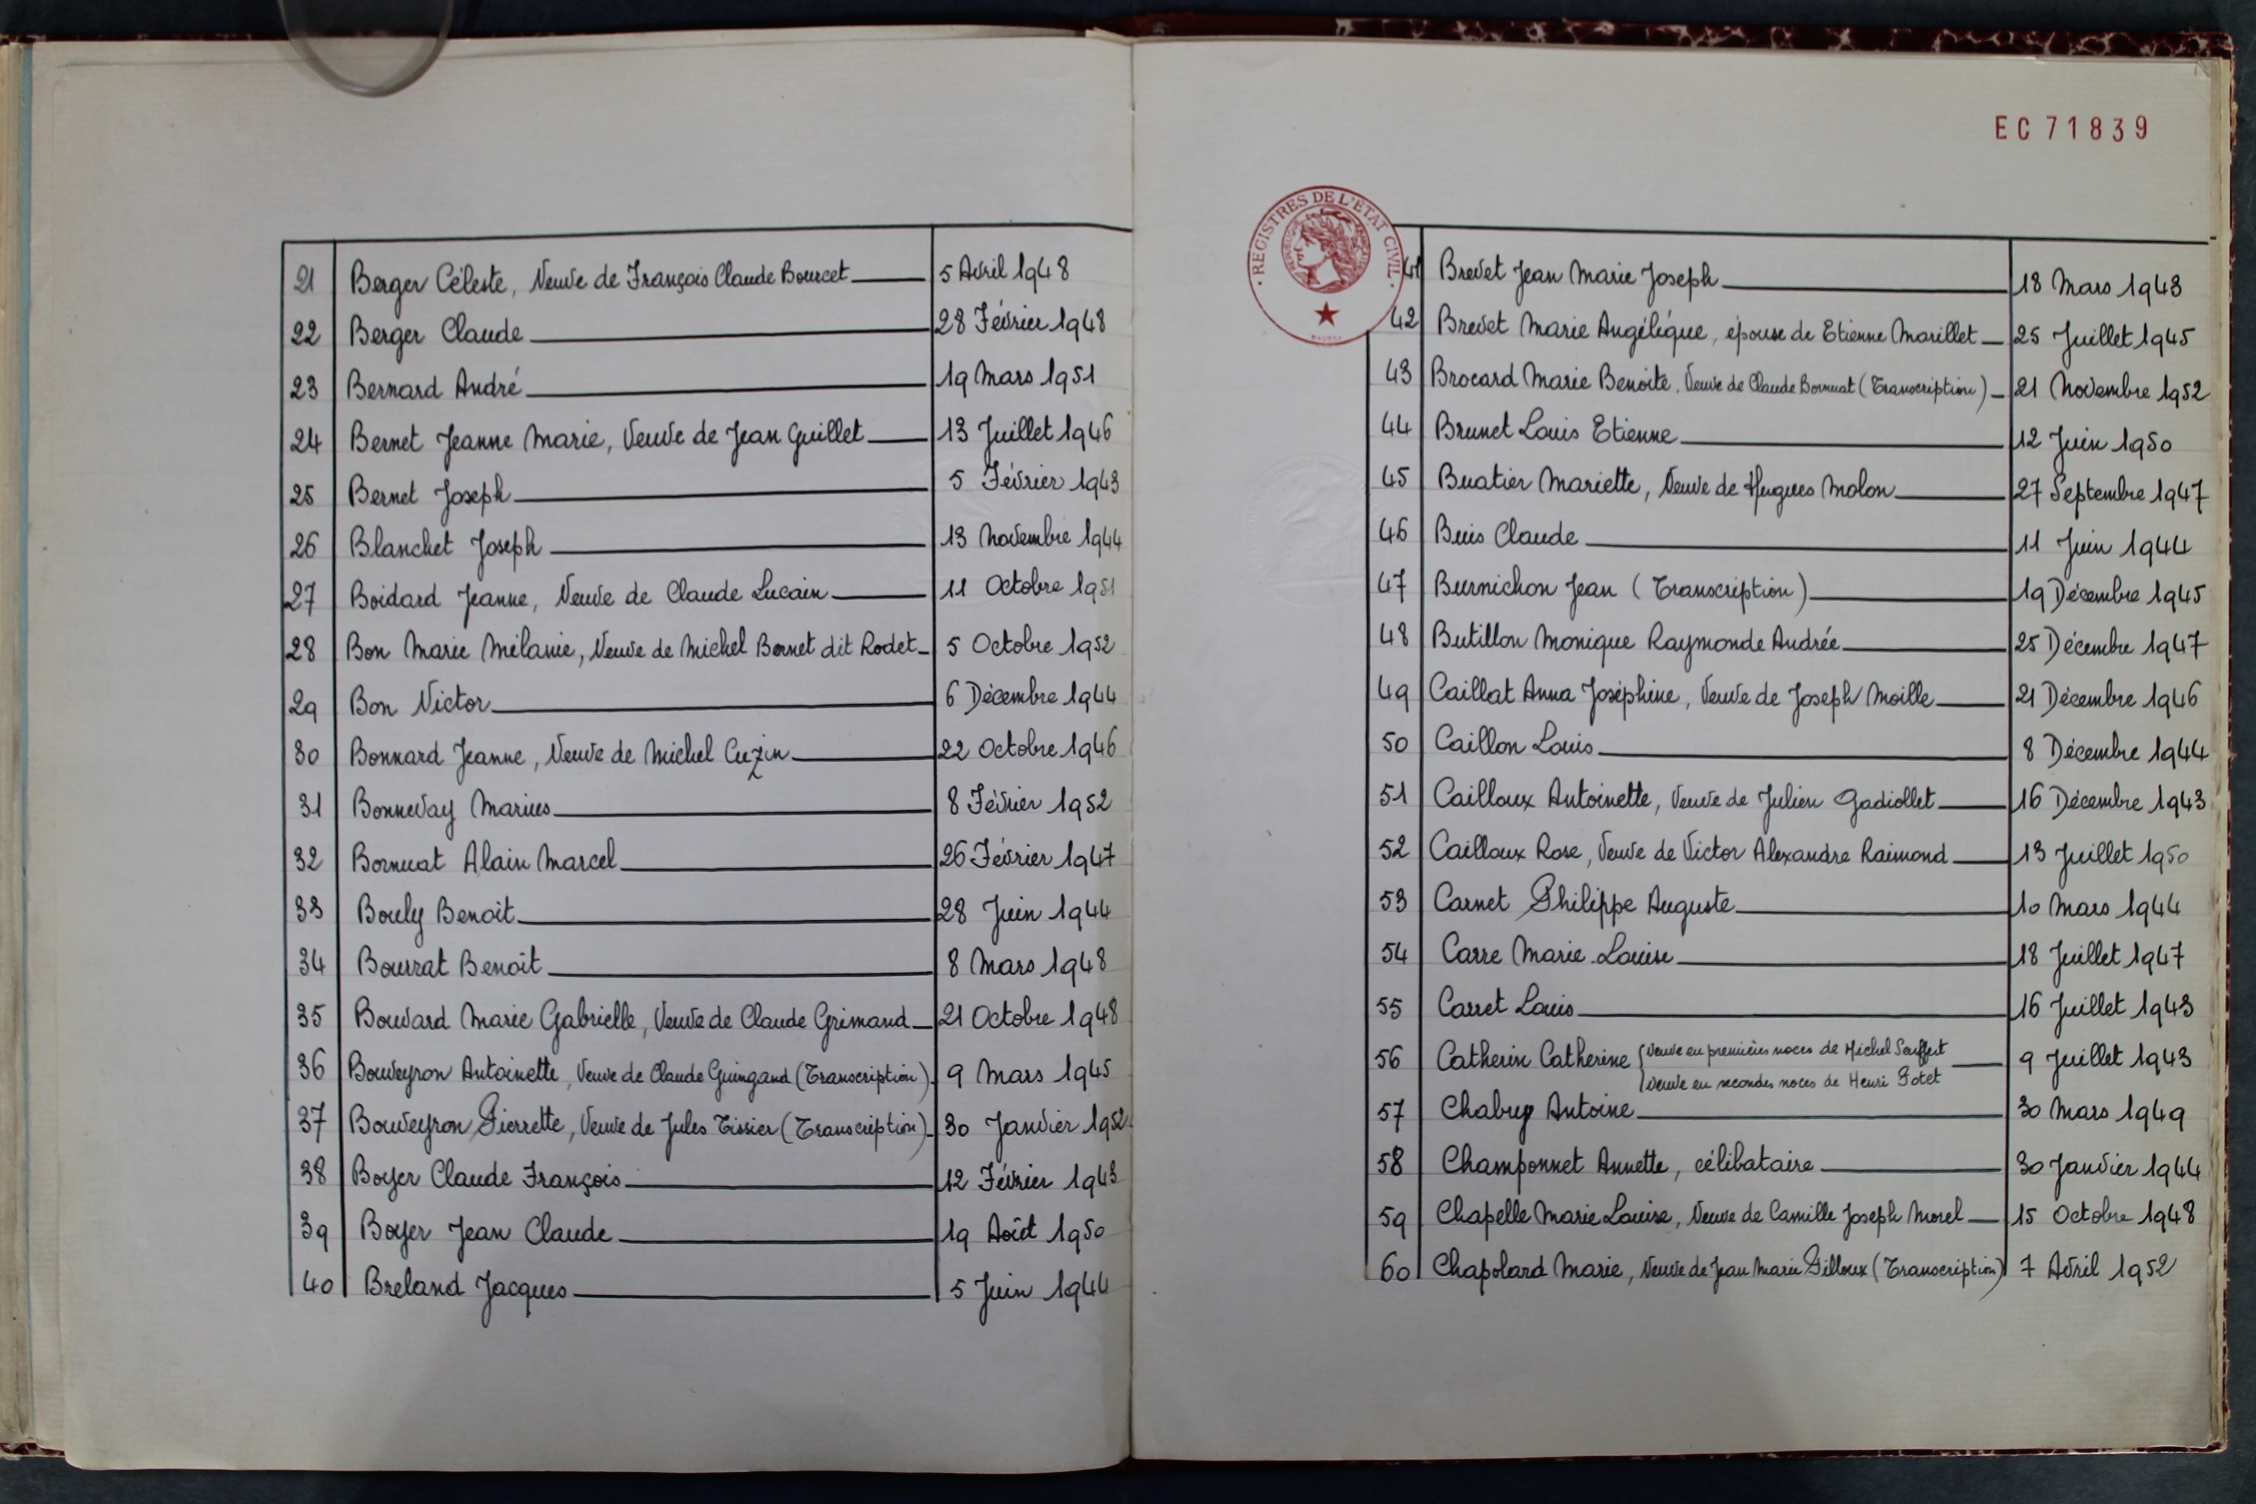 21 Berger Céleste, Veuve de François Claude Bourcet 5 Avril 1948
22 Berger Claude 28 Février 1948
23 Bernard André 19 Mars 1951
24 Bernet Jeanne Marie, Veuve de Jean Guillet 13 Juillet 1946
25 Bernet Joseph 5 Février 1943
26 Blanchet Joseph 13 Novembre 1944
27 Boidard Jeanne, Veuve de Claude Lucain 11 Octobre 1951
28 Bon Marie Mélanie, Veuve de Michel Bornet dit Rodet 5 Octobre 1952
29 Bon Victor 6 Décembre 1944
30 Bonnard Jeanne, Veuve de Michel Cuzin 22 Octobre 1946
31 Bonnevay Marius 8 Février 1952
32 Bornuat Alain Marcel 26 Février 1947
33 Bouly Benoit 28 Juin 1944
34 Bourrat Benoît 8 Mars 1948
35 Bouvard Marie Gabrielle, Veuve de Claude Grimand 21 Octobre 1948
36 Bouveyron Antoinette, Veuve de Claude Guingand (Transcription) 9 Mars 1945
37 Bouveyron Pierrette, Veuve de Jules Tissier (Transcription) 30 Janvier 1952
38 Boyer Claude François 12 Février 1943
39 Boyer Jean Claude 19 Août 1950
40 Breland Jacques 5 Juin 1944
EC 71839
· REGISTRES DE L'ETAT CIVIL ·
41 Brevet Jean Marie Joseph 18 Mars 1943
42 Brevet Marie Angélique, épouse de Etienne Marillet 25 Juillet 1945
43 Brocard Marie Benoite, Veuve de Claude Bornuat (Transcription) 21 Novembre 1952
44 Brunet Louis Etienne 12 Juin 1950
45 Buatier Mariette, Veuve de Hugues Molon 27 Septembre 1947
46 Buis Claude 11 Juin 1944
47 Burnichon Jean (Transcription) 19 Décembre 1945
48 Butillon Monique Raymonde Andrée 25 Décembre 1947
49 Caillat Anna Joséphine, Veuve de Joseph Moille 21 Décembre 1946
50 Caillon Louis 8 Décembre 1944
51 Cailloux Antoinette, Veuve de Julien Gadiollet 16 Décembre 1943
52 Cailloux Rose, Veuve de Victor Alexandre Raimond 13 Juillet 1950
53 Carnet Philippe Auguste 10 Mars 1944
54 Carre Marie-Louise 18 Juillet 1947
55 Carret Louis 16 Juillet 1943
56 Catherin Catherine { Veuve en premières noces de Michel Seuffert 9 Juillet 1943
Veuve en secondes noces de Henri Potet
57 Chabuy Antoine 30 Mars 1949
58 Champonnet Annette, célibataire 30 Janvier 1944
59 Chapelle Marie Louise, Veuve de Camille Joseph Morel 15 Octobre 1948
60 Chapolard Marie, Veuve de Jean Marie Pilloux (Transcription) 7 Avril 1952